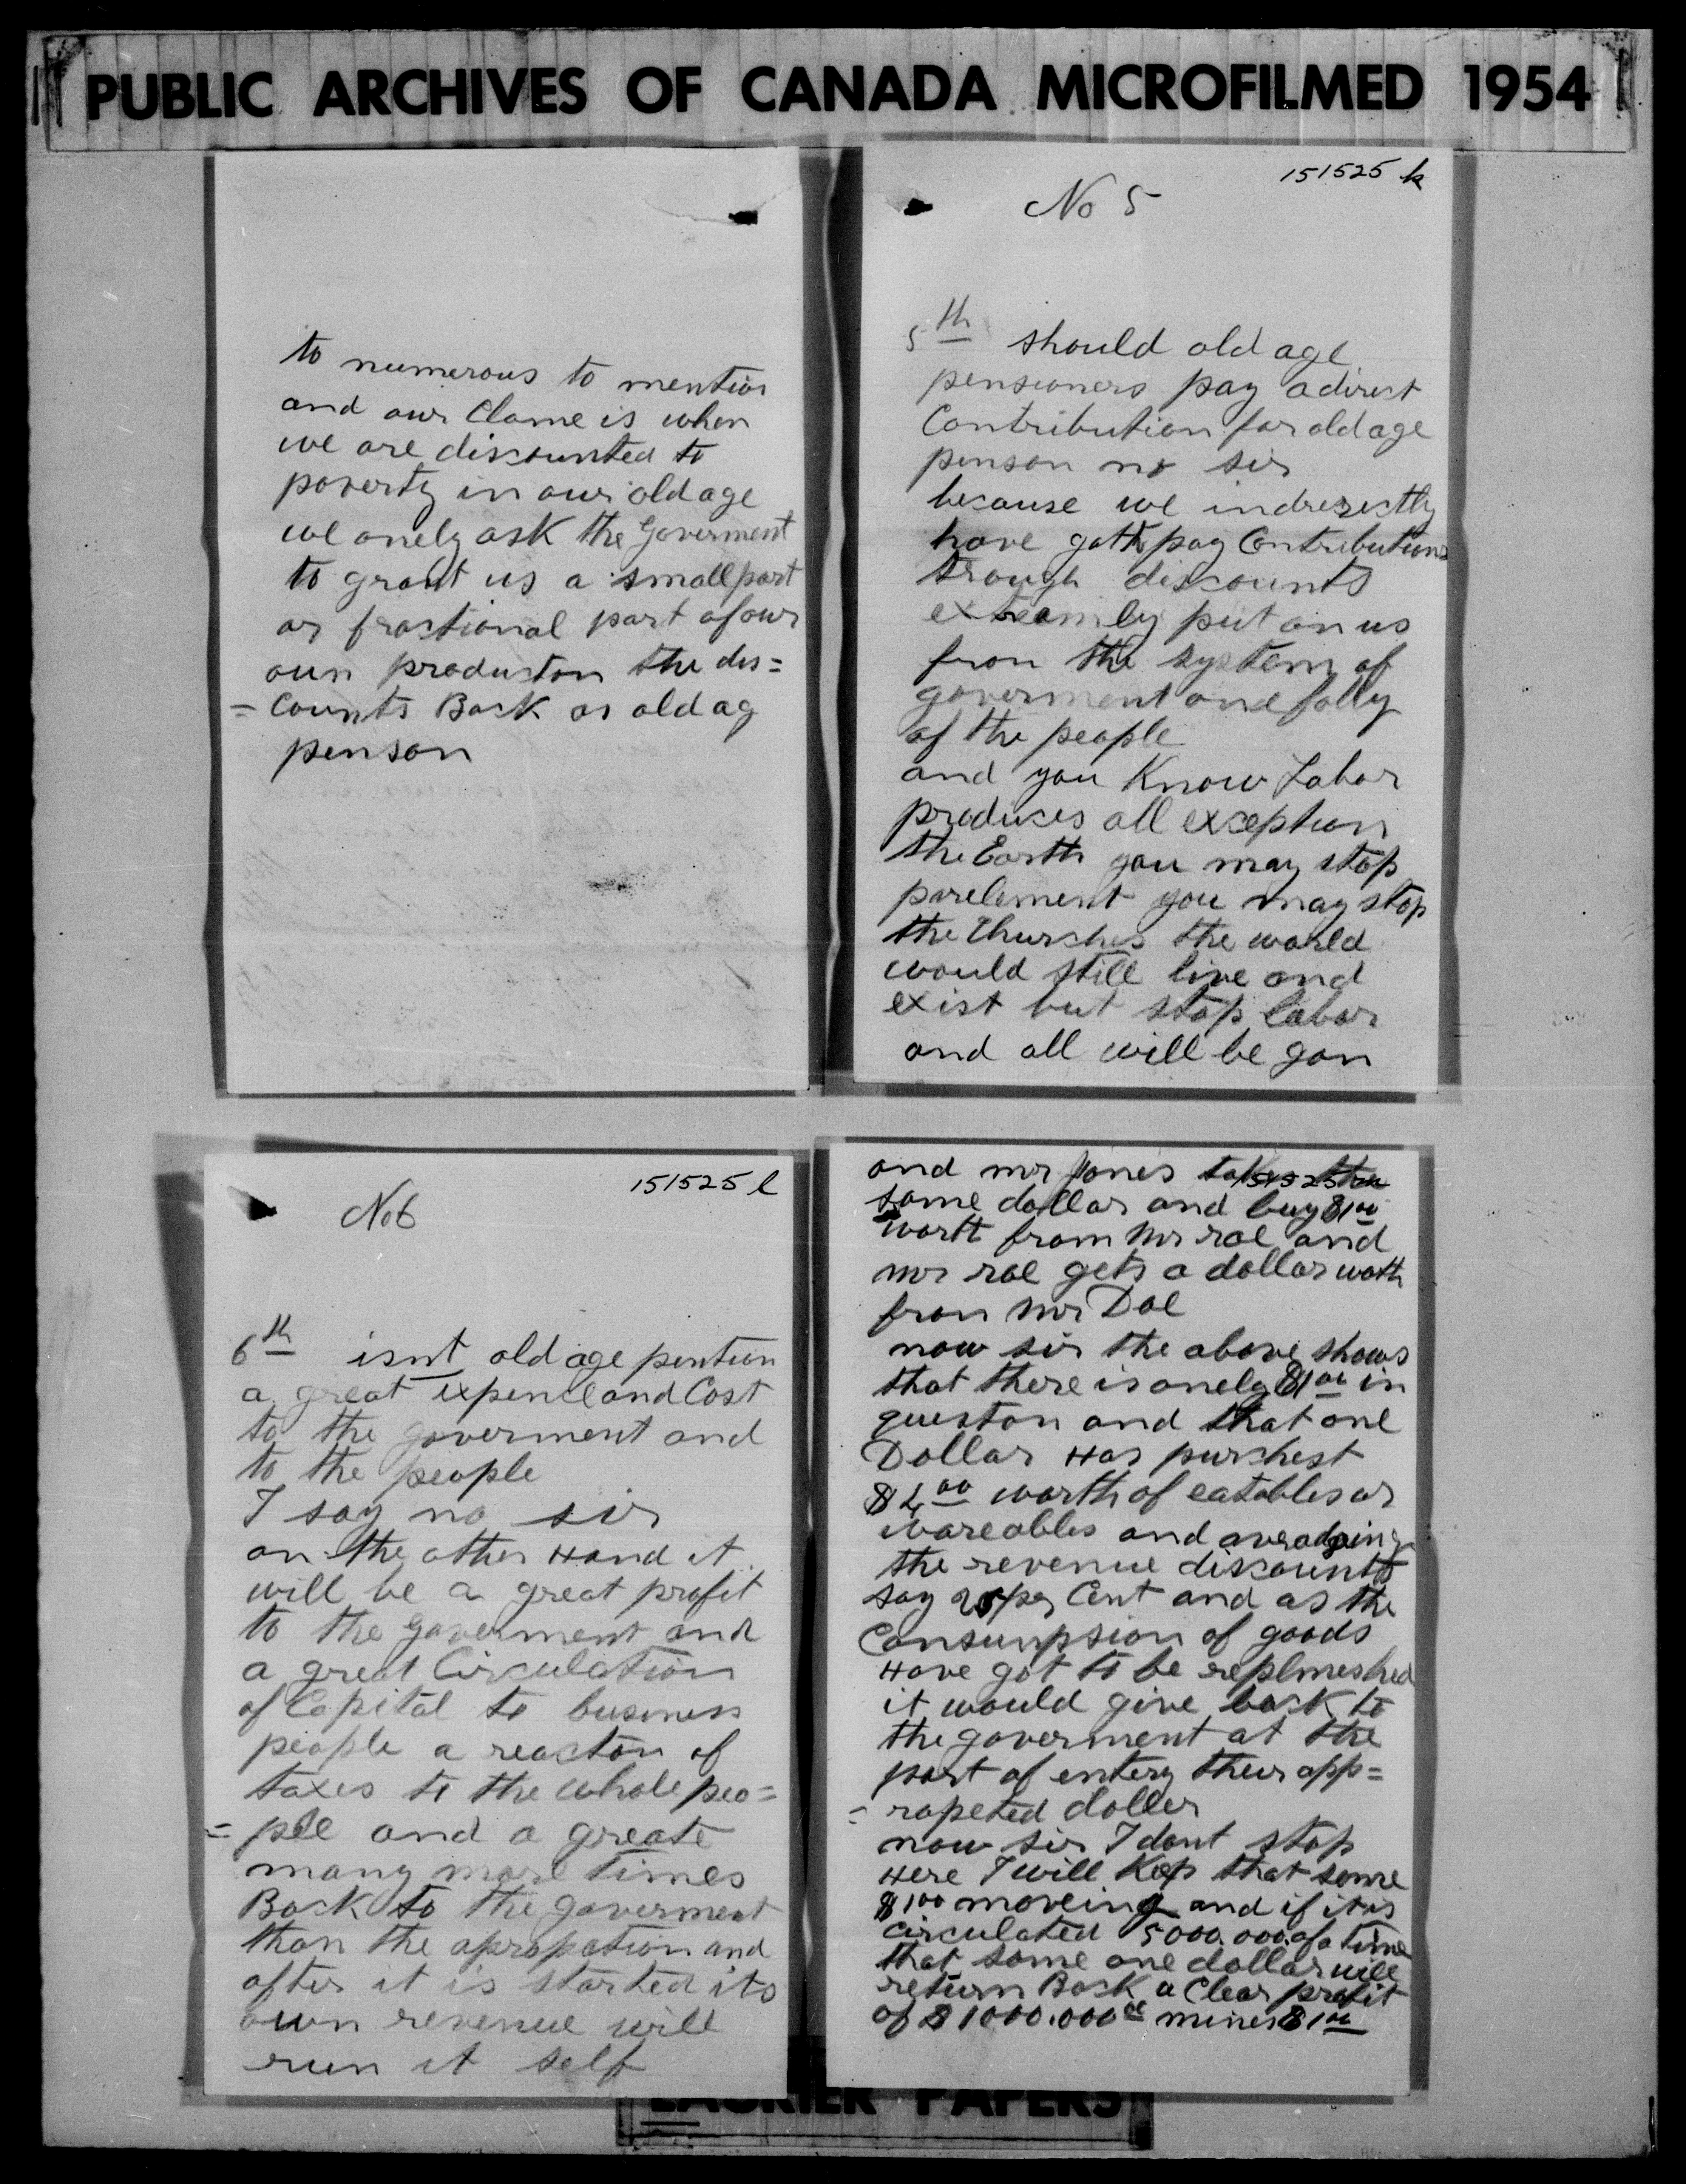 PUBLIC ARCHIVES OF CANADA MICROFILMED 1954
to numerous to mention
and our Clame is when
we are discounted to
poverty in our old age
we onely ask the Goverment
to grant us a small part
or fractional part of our
oun producton the dis=
= Counts Back as old ag
penson
151525 k
No 5
5th should old age
pensioners pay a direct
Contribution for old age
penson no sir
because we indrerectly
have gotto pay Contributions
trough discounts
extreamley put on us
fron the system of
goverment and folly
of the people
and you Know Labor
produces all exception
the Earth you may stop
parelement you may stop
the Churches the world
would still live and
exist but stop labor
and all will be gon
151525 l
No 6
6th isnt old age pention
a great expence and Cost
to the goverment and
to the people
I say no sir
on the other Hand it
will be a great profit
to the Goverment and
a great Circulation
of Capital to business
people a reacton of
taxes to the whole peo=
= ple and a greate
many more times
Back to the goverment
than the apropation and
after it is started its
own revenue will
run it self
and mr Jones takes the
same dollar and buy $1.00
worth from Mr roe and
mr roe gets a dollar woth
fron Mr Doe
now sir the above shows
that there is onely $1.00 in
queston and that one
Dollar Has purchest
$4.00 worth of eatables or
wareables and averadging
the revenue discounts
say 25 per Cent and as the
Consumpsion of goods
Have got to be replineshed
it would give back to
the goverment at the
port of entery their app=
= ropeted doller
now sir I dont stop
Here I will Keep that same
$1.00 moveing and if it is
circulated 5000.000 of a time
that same one dollar will
return Back a Clear profit
of $1000.000.00 mines $1.00
LAURIER PAPERS